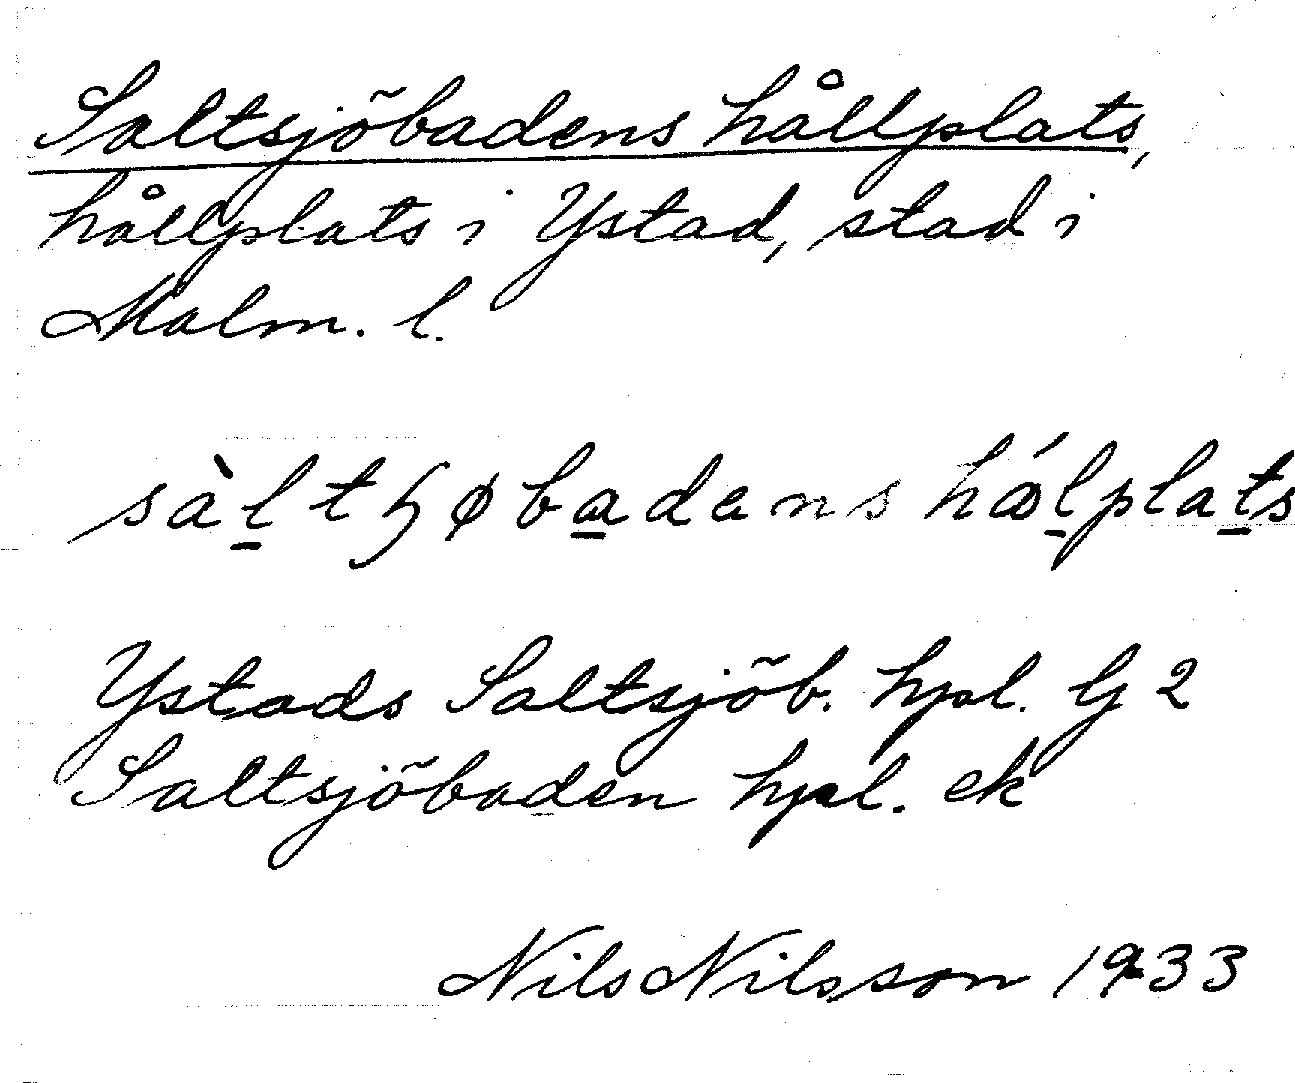 Saltsjöbadens hållplats,
hållplats i Ystad, stad i
Malm. l.
sàltɧøbadens hálplats
Ystads Saltsjöb. hpl. G 2
Saltsjöbaden hpl. ek
Nils Nilsson 1933